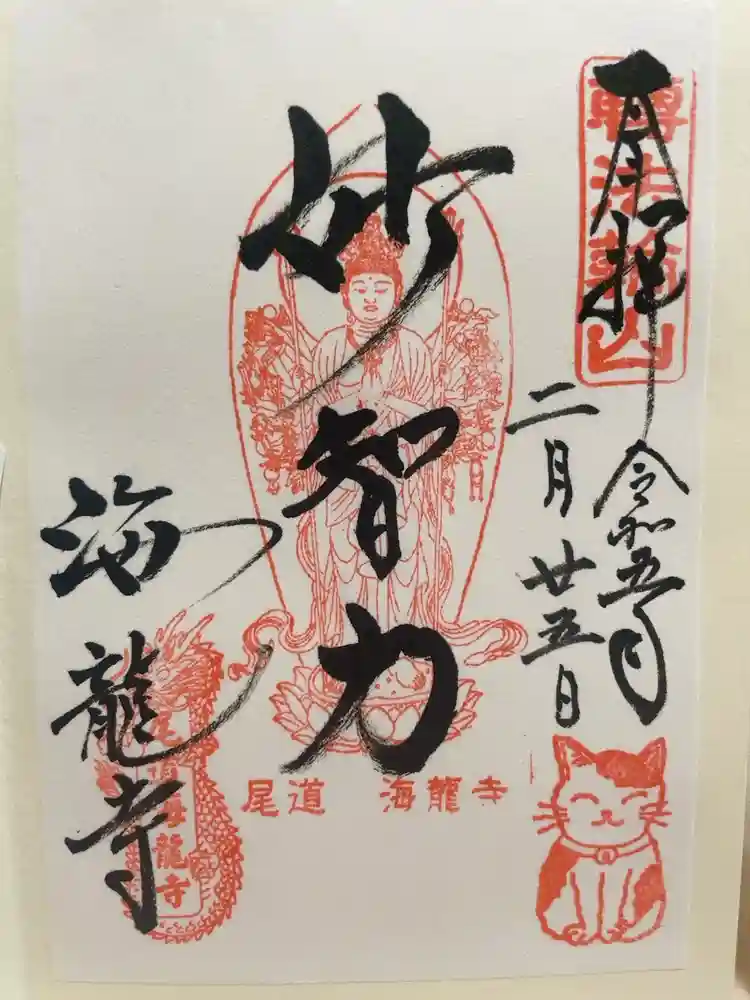 奉拝
轉法輪山
令和五年
二月廿五日
妙智力
尾道 海龍寺
海龍寺
尾道海龍寺